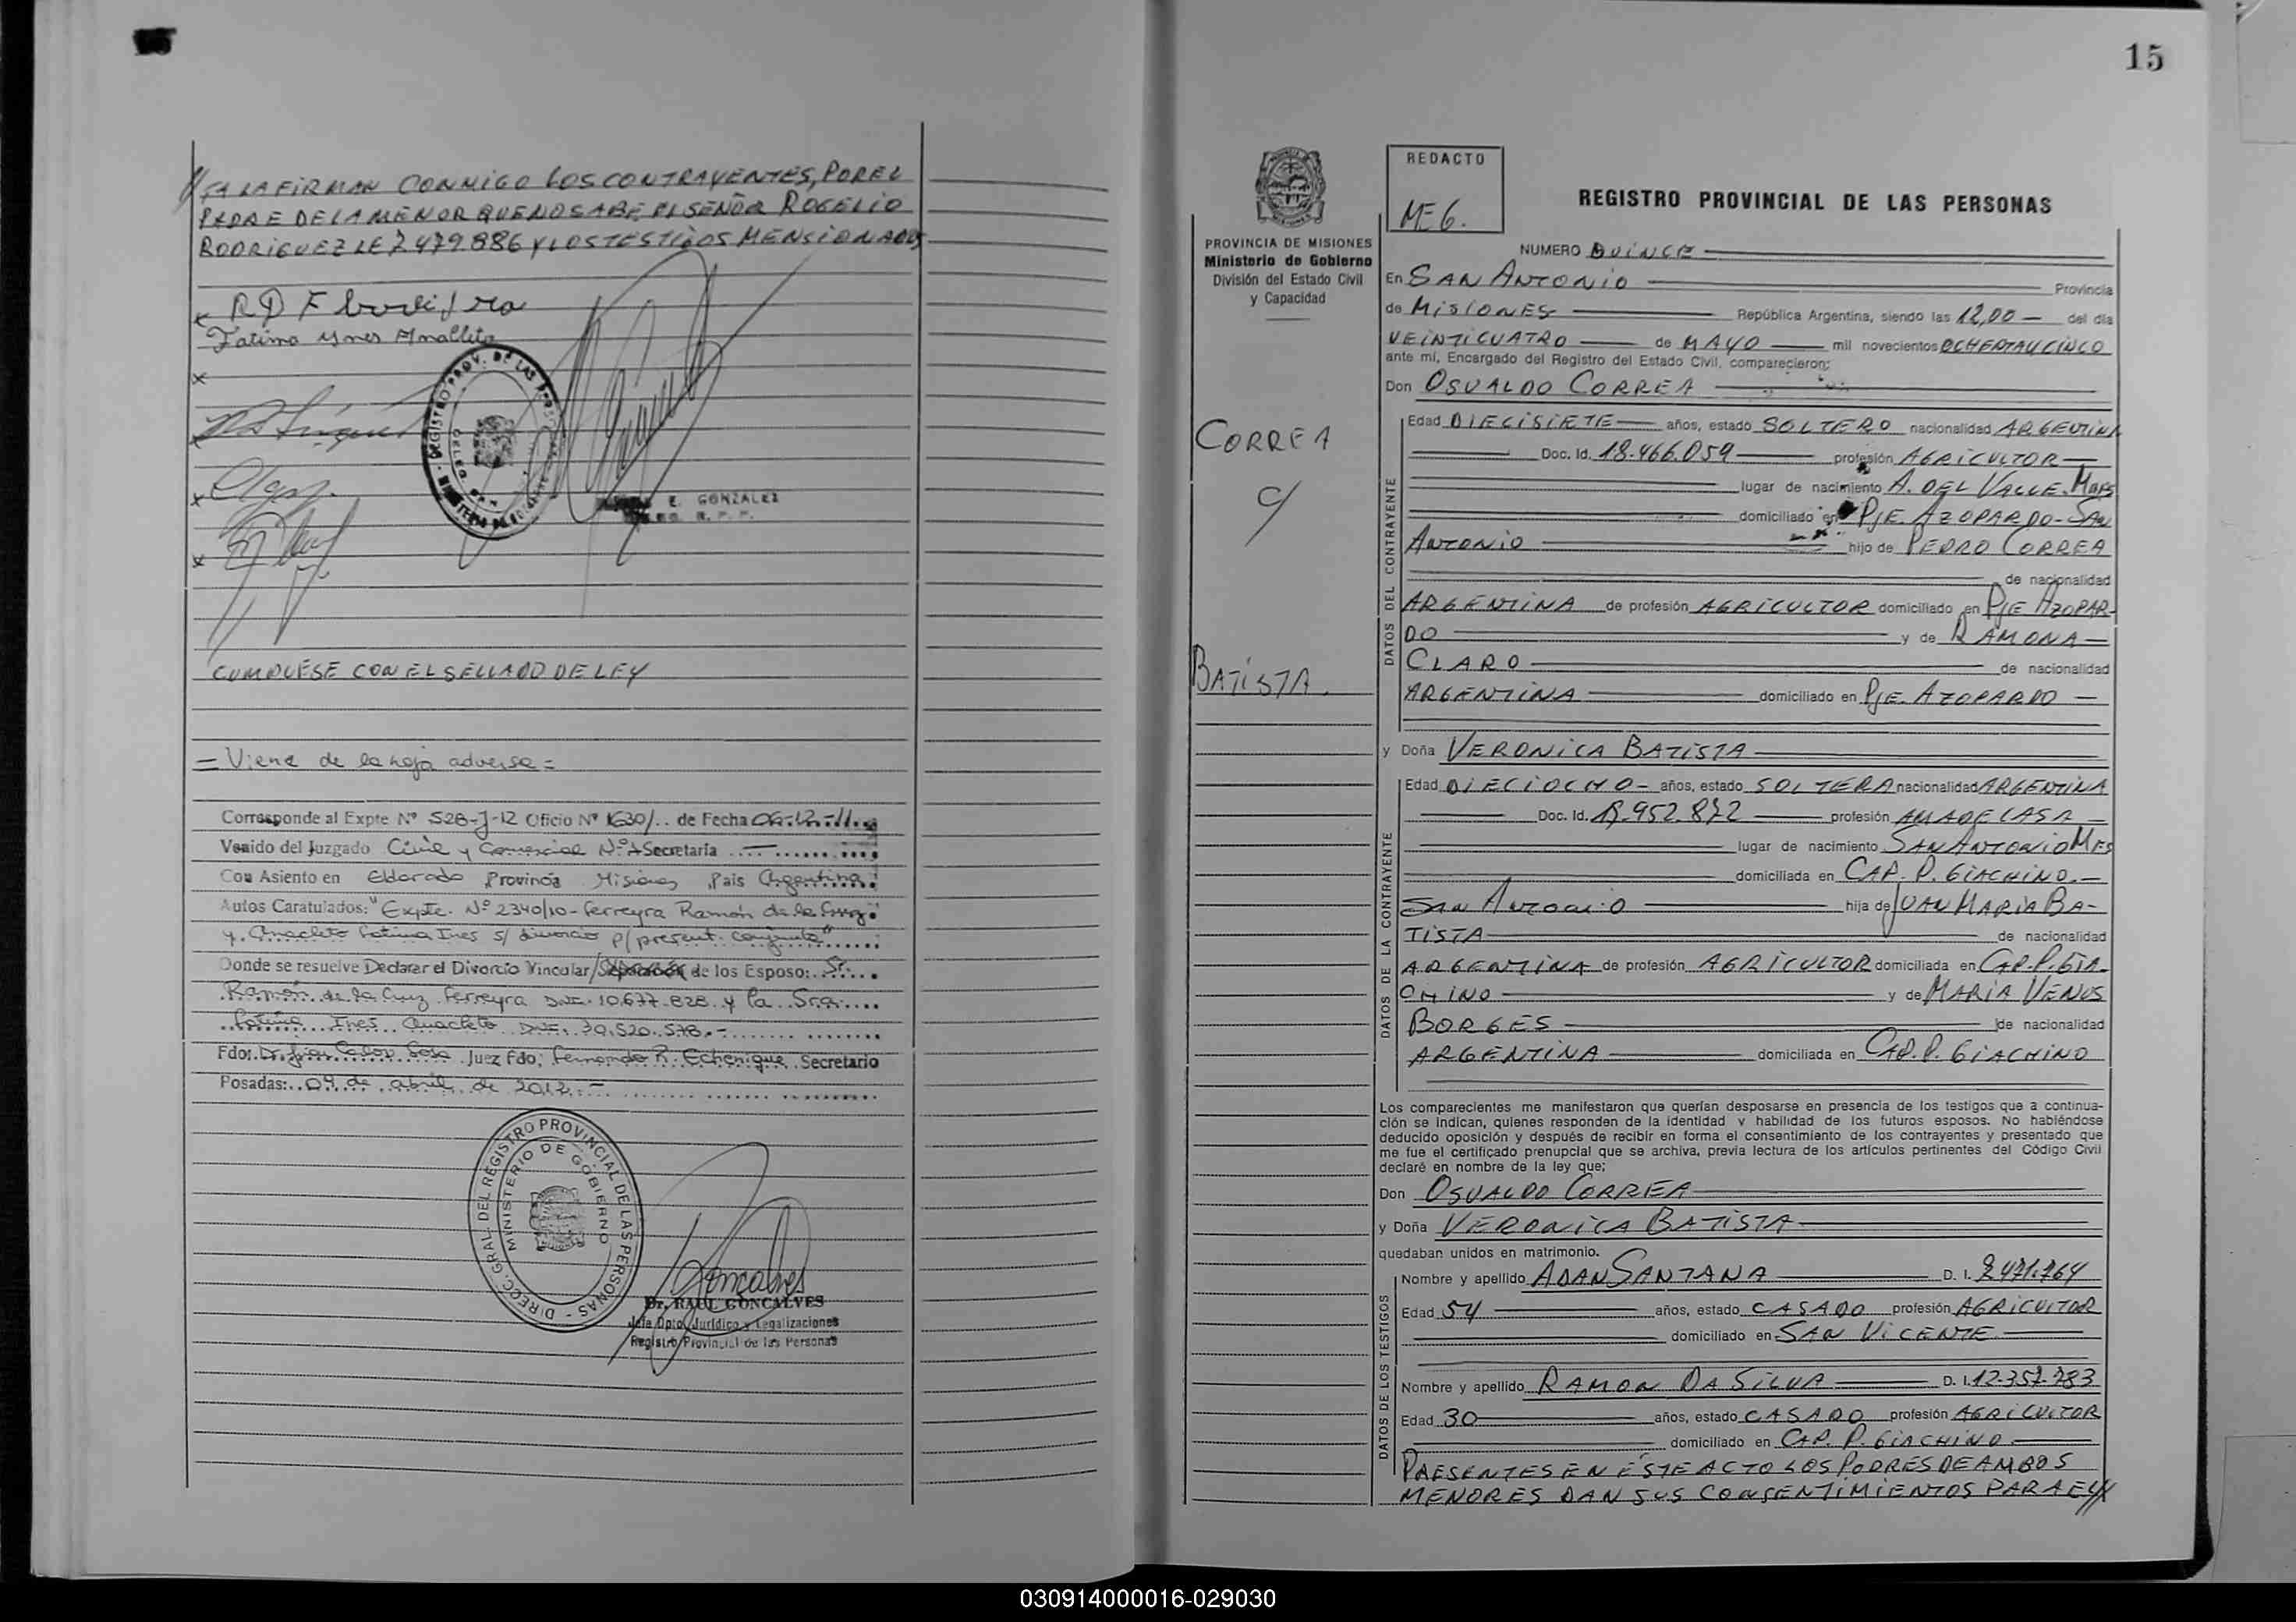 TA LA FIRMAN CONMIGO LOS CONTRAYENTES, POR EL
PADRE DE LA MENOR QUE NO SABE EL SEÑOR ROGELIO
RODRIGUEZ LE 7.479.886 Y LOS TESTIGOS MENSIONADOS
Fatima Ynes Anacleto
REGISTRO PROV. DE LAS
E. GONZALEZ
CUMPLESE CON EL SELLADO DE LEY
= Viene de la hoja adversa =
Corresponde al Expte Nº 528-J-12 Oficio Nº 1630/.. de Fecha 06.12.11.
Venido del Juzgado Civil y Comercial Nº 1 Secretaría
Con Asiento en Eldorado Provincia Misiones Pais Argentina
Autos Caratulados: "Expte. Nº 2340/10 - Ferreyra Ramón de la Cruz
y Anacleto Fatima Ines s/ divorcio p/ present. conjunta"
Donde se resuelve Declarar el Divorcio Vincular/Separación de los Esposo: Sr.
Ramón de la Cruz Ferreyra DNI. 10.677.828 y la Sra.
Fatima Ines Anacleto DNI. 20.520.578.-
Fdo: Dr. Juan Carlos Sosa Juez Fdo; Fernando R. Echenique Secretario
Posadas: 09 de abril de 2012.-
DIRECC. GRAL. DEL REGISTRO PROVINCIAL DE LAS PERSONAS
MINISTERIO DE GOBIERNO
Dr. RAUL GONCALVES
Jefe Dpto. Jurídico y Legalizaciones
Registro Provincial de las Personas
15
PROVINCIA DE MISIONES
Ministerio de Gobierno
División del Estado Civil
y Capacidad
CORREA
c/
BATISTA
REDACTO
ME6.
REGISTRO PROVINCIAL DE LAS PERSONAS
NUMERO QUINCE
En SAN ANTONIO Provincia
de MISIONES República Argentina, siendo las 12,00 del día
VEINTICUATRO de MAYO mil novecientos OCHENTAYCINCO
ante mí, Encargado del Registro del Estado Civil, comparecieron:
Don OSVALDO CORREA
DATOS DEL CONTRAYENTE
Edad DIECISIETE años, estado SOLTERO nacionalidad ARGENTINA
Doc. Id. 18.466.059 profesión AGRICULTOR
lugar de nacimiento A. DEL VALLE. Mnes
domiciliado en PJE. AZOPARDO - SAN
ANTONIO hijo de PEDRO CORREA
de nacionalidad
ARGENTINA de profesión AGRICULTOR domiciliado en PJE AZOPAR-
DO y de RAMONA
CLARO de nacionalidad
ARGENTINA domiciliado en PJE. AZOPARDO
y Doña VERONICA BATISTA
DATOS DE LA CONTRAYENTE
Edad DIECIOCHO - años, estado SOLTERA nacionalidad ARGENTINA
Doc. Id. 18.952.872 profesión AMA DE CASA
lugar de nacimiento SAN ANTONIO Mnes
domiciliada en CAP. P. GIACHINO.-
SAN ANTONIO hija de JUAN MARIA BA-
TISTA de nacionalidad
ARGENTINA de profesión AGRICULTOR domiciliada en CAP. P. GIA-
CHINO y de MARIA VENUS
BORGES de nacionalidad
ARGENTINA domiciliada en CAP. P. GIACHINO
Los comparecientes me manifestaron que querían desposarse en presencia de los testigos que a continua-
ción se indican, quienes responden de la identidad y habilidad de los futuros esposos. No habiéndose
deducido oposición y después de recibir en forma el consentimiento de los contrayentes y presentado que
me fue el certificado prenupcial que se archiva, previa lectura de los artículos pertinentes del Código Civil
declaré en nombre de la ley que;
Don OSVALDO CORREA
y Doña VERONICA BATISTA
quedaban unidos en matrimonio.
DATOS DE LOS TESTIGOS
Nombre y apellido ADAN SANTANA D. I. 2.471.764
Edad 54 años, estado CASADO profesión AGRICULTOR
domiciliado en SAN VICENTE
Nombre y apellido RAMON DA SILVA D. I. 12.357.783
Edad 30 años, estado CASADO profesión AGRICULTOR
domiciliado en CAP. P. GIACHINO
PRESENTES EN ÉSTE ACTO LOS PADRES DE AMBOS
MENORES DAN SUS CONSENTIMIENTOS PARA EL//
030914000016-029030